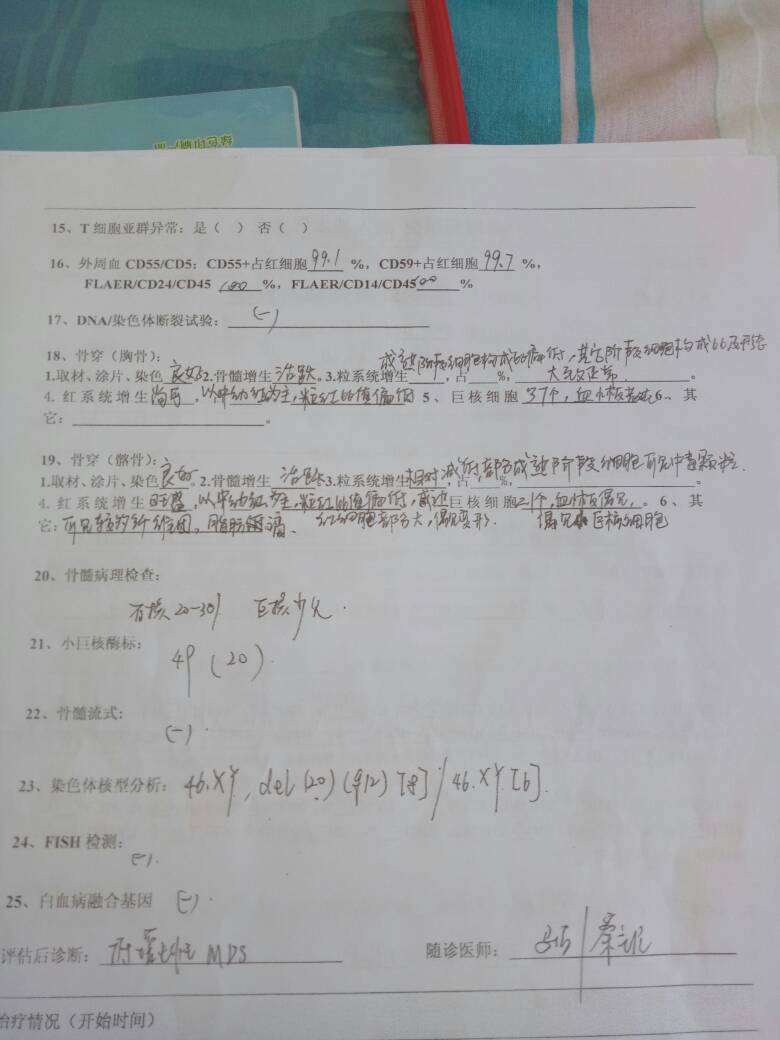 15、T 细胞亚群异常：是（ ） 否（ ）
16、外周血 CD55/CD5：CD55+占红细胞 99.1 %，CD59+占红细胞 99.7 %，
FLAER/CD24/CD45 100 %，FLAER/CD14/CD45 100 %
17、DNA/染色体断裂试验： (-)
18、骨穿（胸骨）：
成熟阶段细胞构成比偏低，其它阶段细胞构成比及形态
1.取材、涂片、染色 良好 2.骨髓增生 活跃。3.粒系统增生 ，占 %， 大致正常。
4. 红系统增生 尚可，以中幼红为主，粒红比值偏低 5、巨核细胞 37个，血小板 6、其
它： 。
19、骨穿（髂骨）：
1.取材、涂片、染色 良好 2.骨髓增生 活跃 3.粒系统增生 相对减低，部分成熟阶段细胞可见中毒颗粒.
4. 红系统增生 旺盛，以中幼红为主，粒红比值偏低， 巨核细胞 2个，血小板偶见。6、其
它： 可见 纤维团，脂肪 、 红细胞部分大，偶见变形. 偶见 巨核细胞
20、骨髓病理检查：
有核 20-30% 巨核少见.
21、小巨核酶标：
49 (20)
22、骨髓流式：
(-).
23、染色体核型分析： 46.XY, del(20)(q12)[8]/46.XY.[6].
24、FISH 检测：
(-).
25、白血病融合基因 (-).
评估后诊断： MDS 随诊医师：
治疗情况（开始时间）